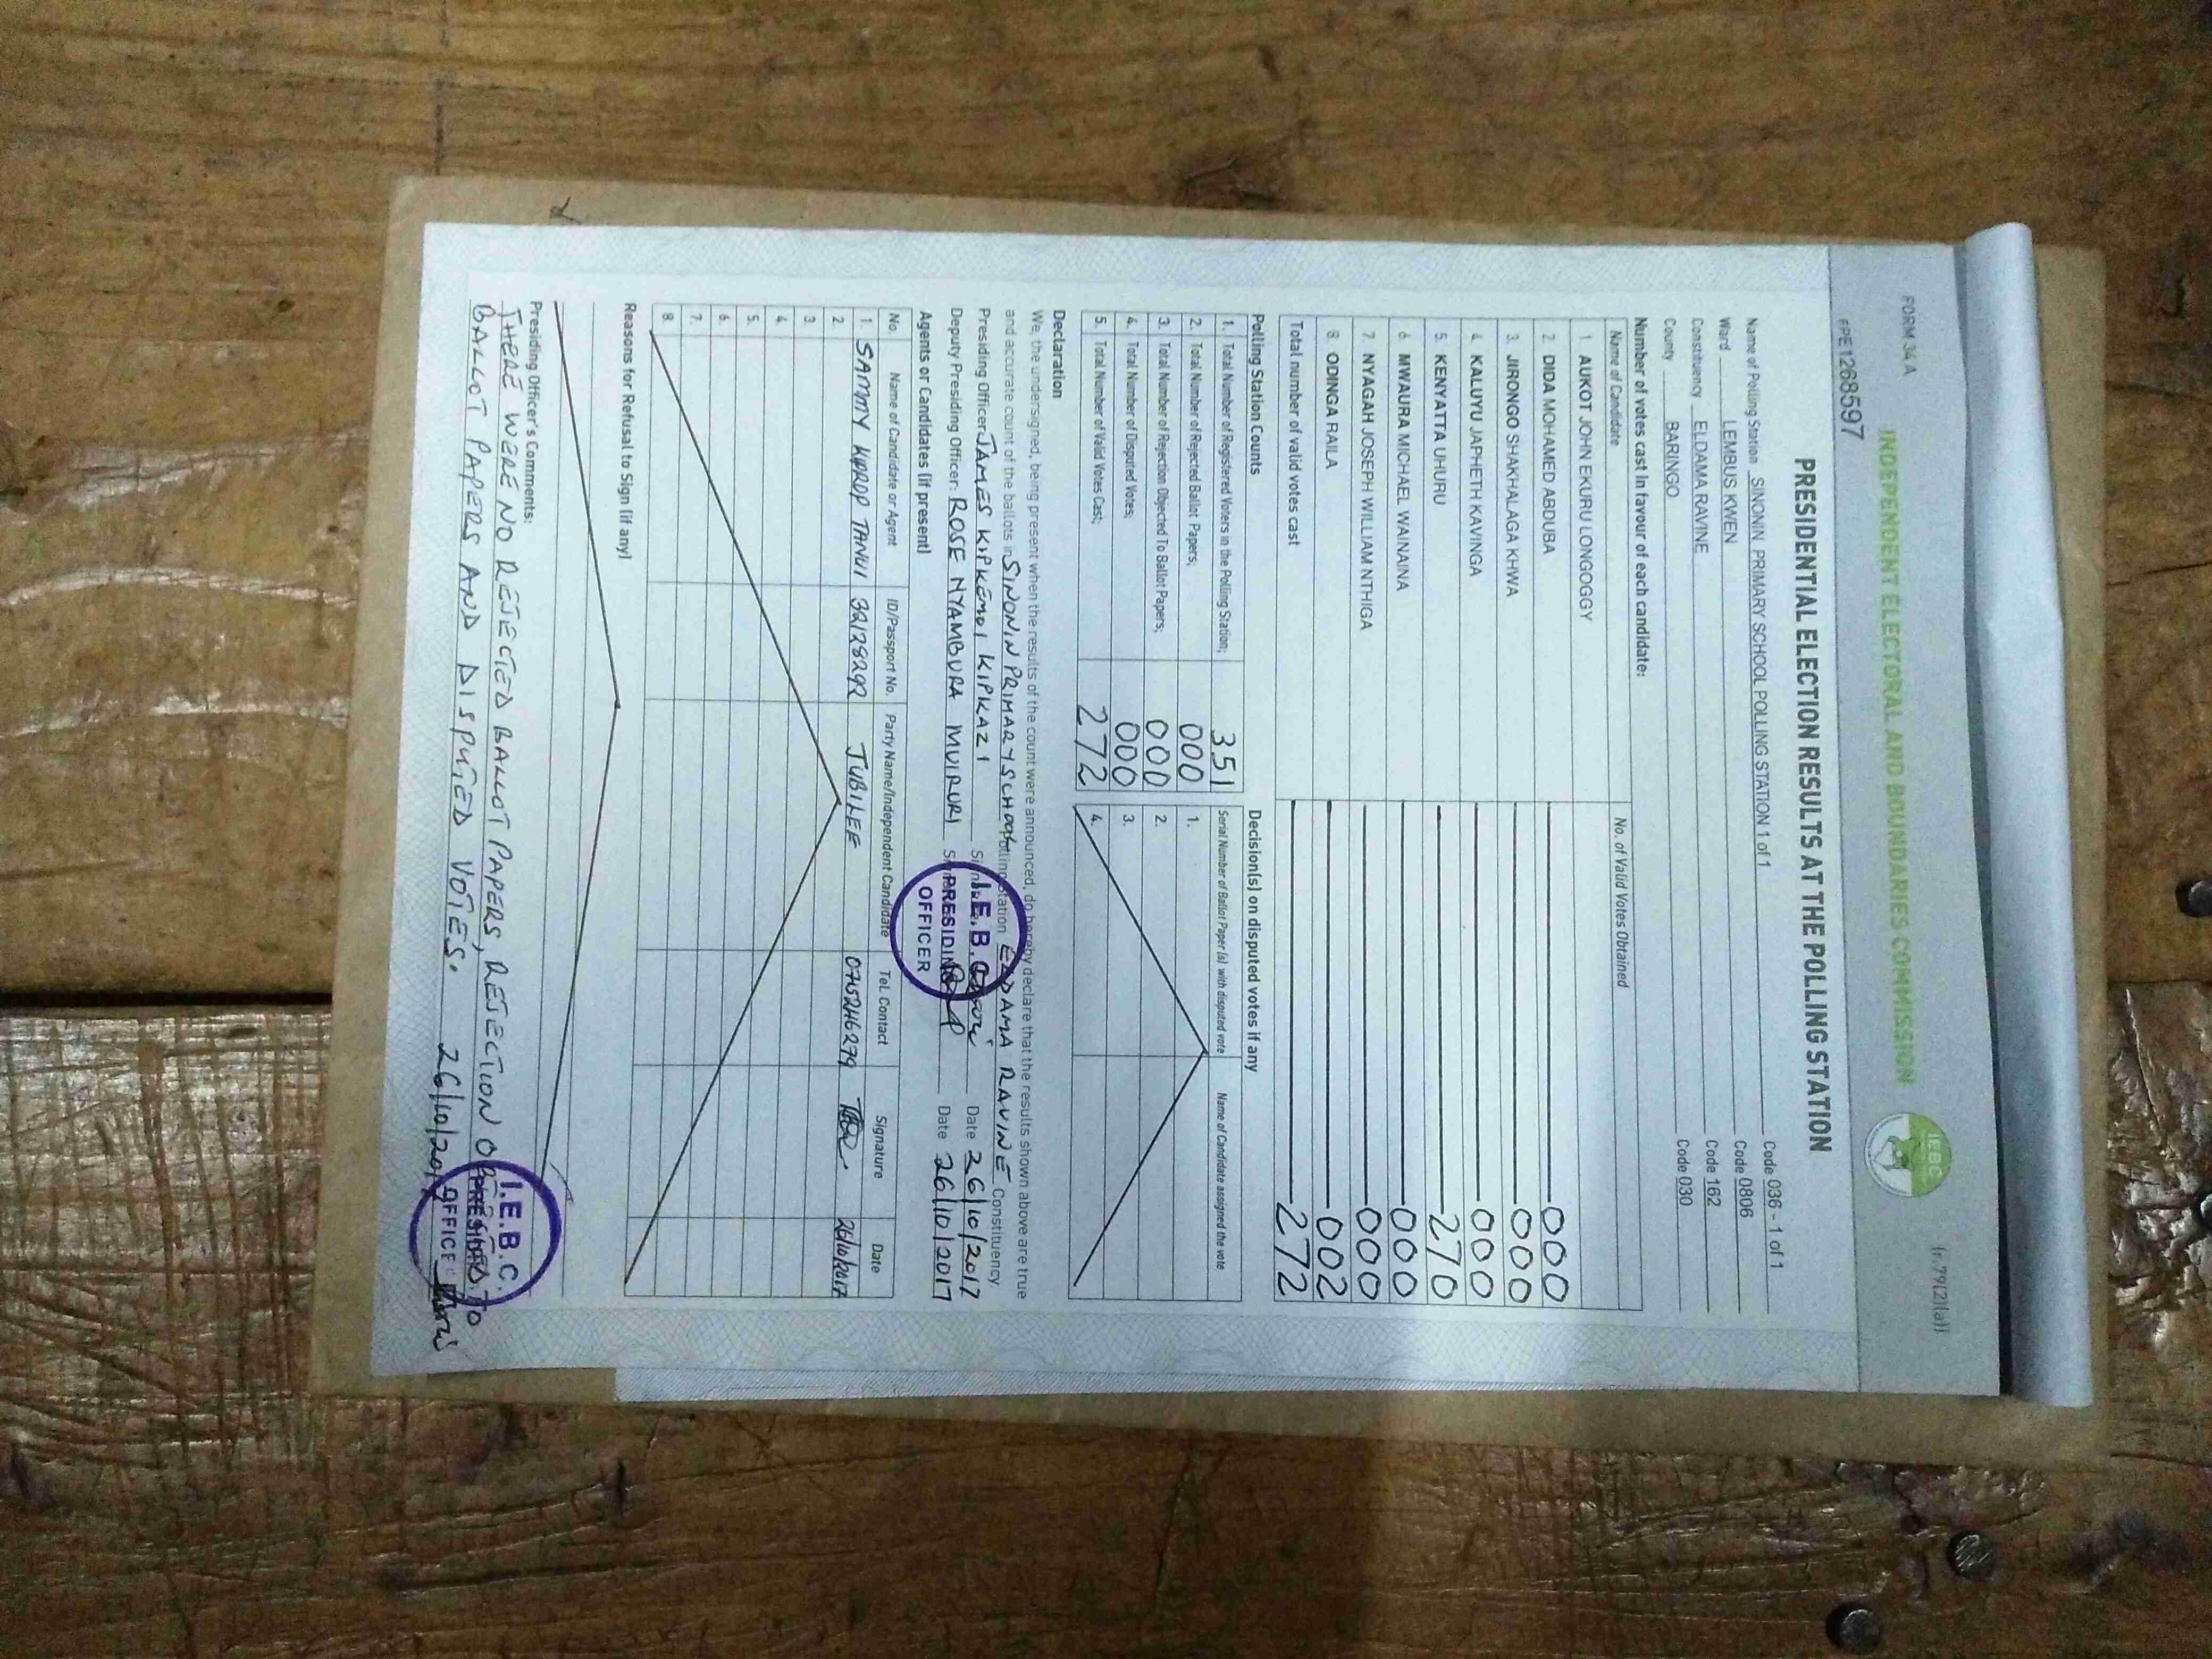 FORM 34A
(r.79(2)(a))
INDEPENDENT ELECTORAL AND BOUNDARIES COMMISSION
IEBC
PPE1268597
PRESIDENTIAL ELECTION RESULTS AT THE POLLING STATION
Name of Polling Station SINONIN PRIMARY SCHOOL POLLING STATION 1 of 1 Code 036 - 1 of 1
Ward LEMBUS KWEN Code 0806
Constituency ELDAMA RAVINE Code 162
County BARINGO Code 030
Number of votes cast in favour of each candidate:
Name of Candidate No. of Valid Votes Obtained
1 AUKOT JOHN EKURU LONGOGGY
2 DIDA MOHAMED ABDUBA 000
3 JIRONGO SHAKHALAGA KHWA 000
4 KALUYU JAPHETH KAVINGA 000
5. KENYATTA UHURU 270
6 MWAURA MICHAEL WAINAINA 000
7 NYAGAH JOSEPH WILLIAM NTHIGA 000
8 ODINGA RAILA 002
Total number of valid votes cast 272
Polling Station Counts
1. Total Number of Registered Voters in the Polling Station; 351
2. Total Number of Rejected Ballot Papers; 000
3. Total Number of Rejection Objected To Ballot Papers; 000
4. Total Number of Disputed Votes; 000
5. Total Number of Valid Votes Cast; 272
Decision(s) on disputed votes if any
Serial Number of Ballot Paper (s) with disputed vote Name of Candidate assigned the vote
1.
2.
3.
4.
Declaration
We, the undersigned, being present when the results of the count were announced, do hereby declare that the results shown above are true
and accurate count of the ballots in SINONIN PRIMARY SCHOOL Polling Station ELDAMA RAVINE Constituency
Presiding Officer JAMES KIPKEMOI KIPKAZI Date 26/10/2017
Deputy Presiding Officer: ROSE NYAMBURA MUIRURI Date 26/10/2017
I.E.B.C.
PRESIDING
OFFICER
Agents or Candidates (if present)
No. Name of Candidate or Agent ID/Passport No. Party Name/Independent Candidate Tel. Contact Signature Date
1. SAMMY KIPROP TANUI 32128292 JUBILEE 0752416279 26/10/2017
2.
3.
4.
5.
6.
7.
8.
Reasons for Refusal to Sign (if any)
Presiding Officer's Comments:
THERE WERE NO REJECTED BALLOT PAPERS, REJECTION OBJECTED TO
BALLOT PAPERS AND DISPUTED VOTES. 26/10/2017
I.E.B.C.
PRESIDING
OFFICER